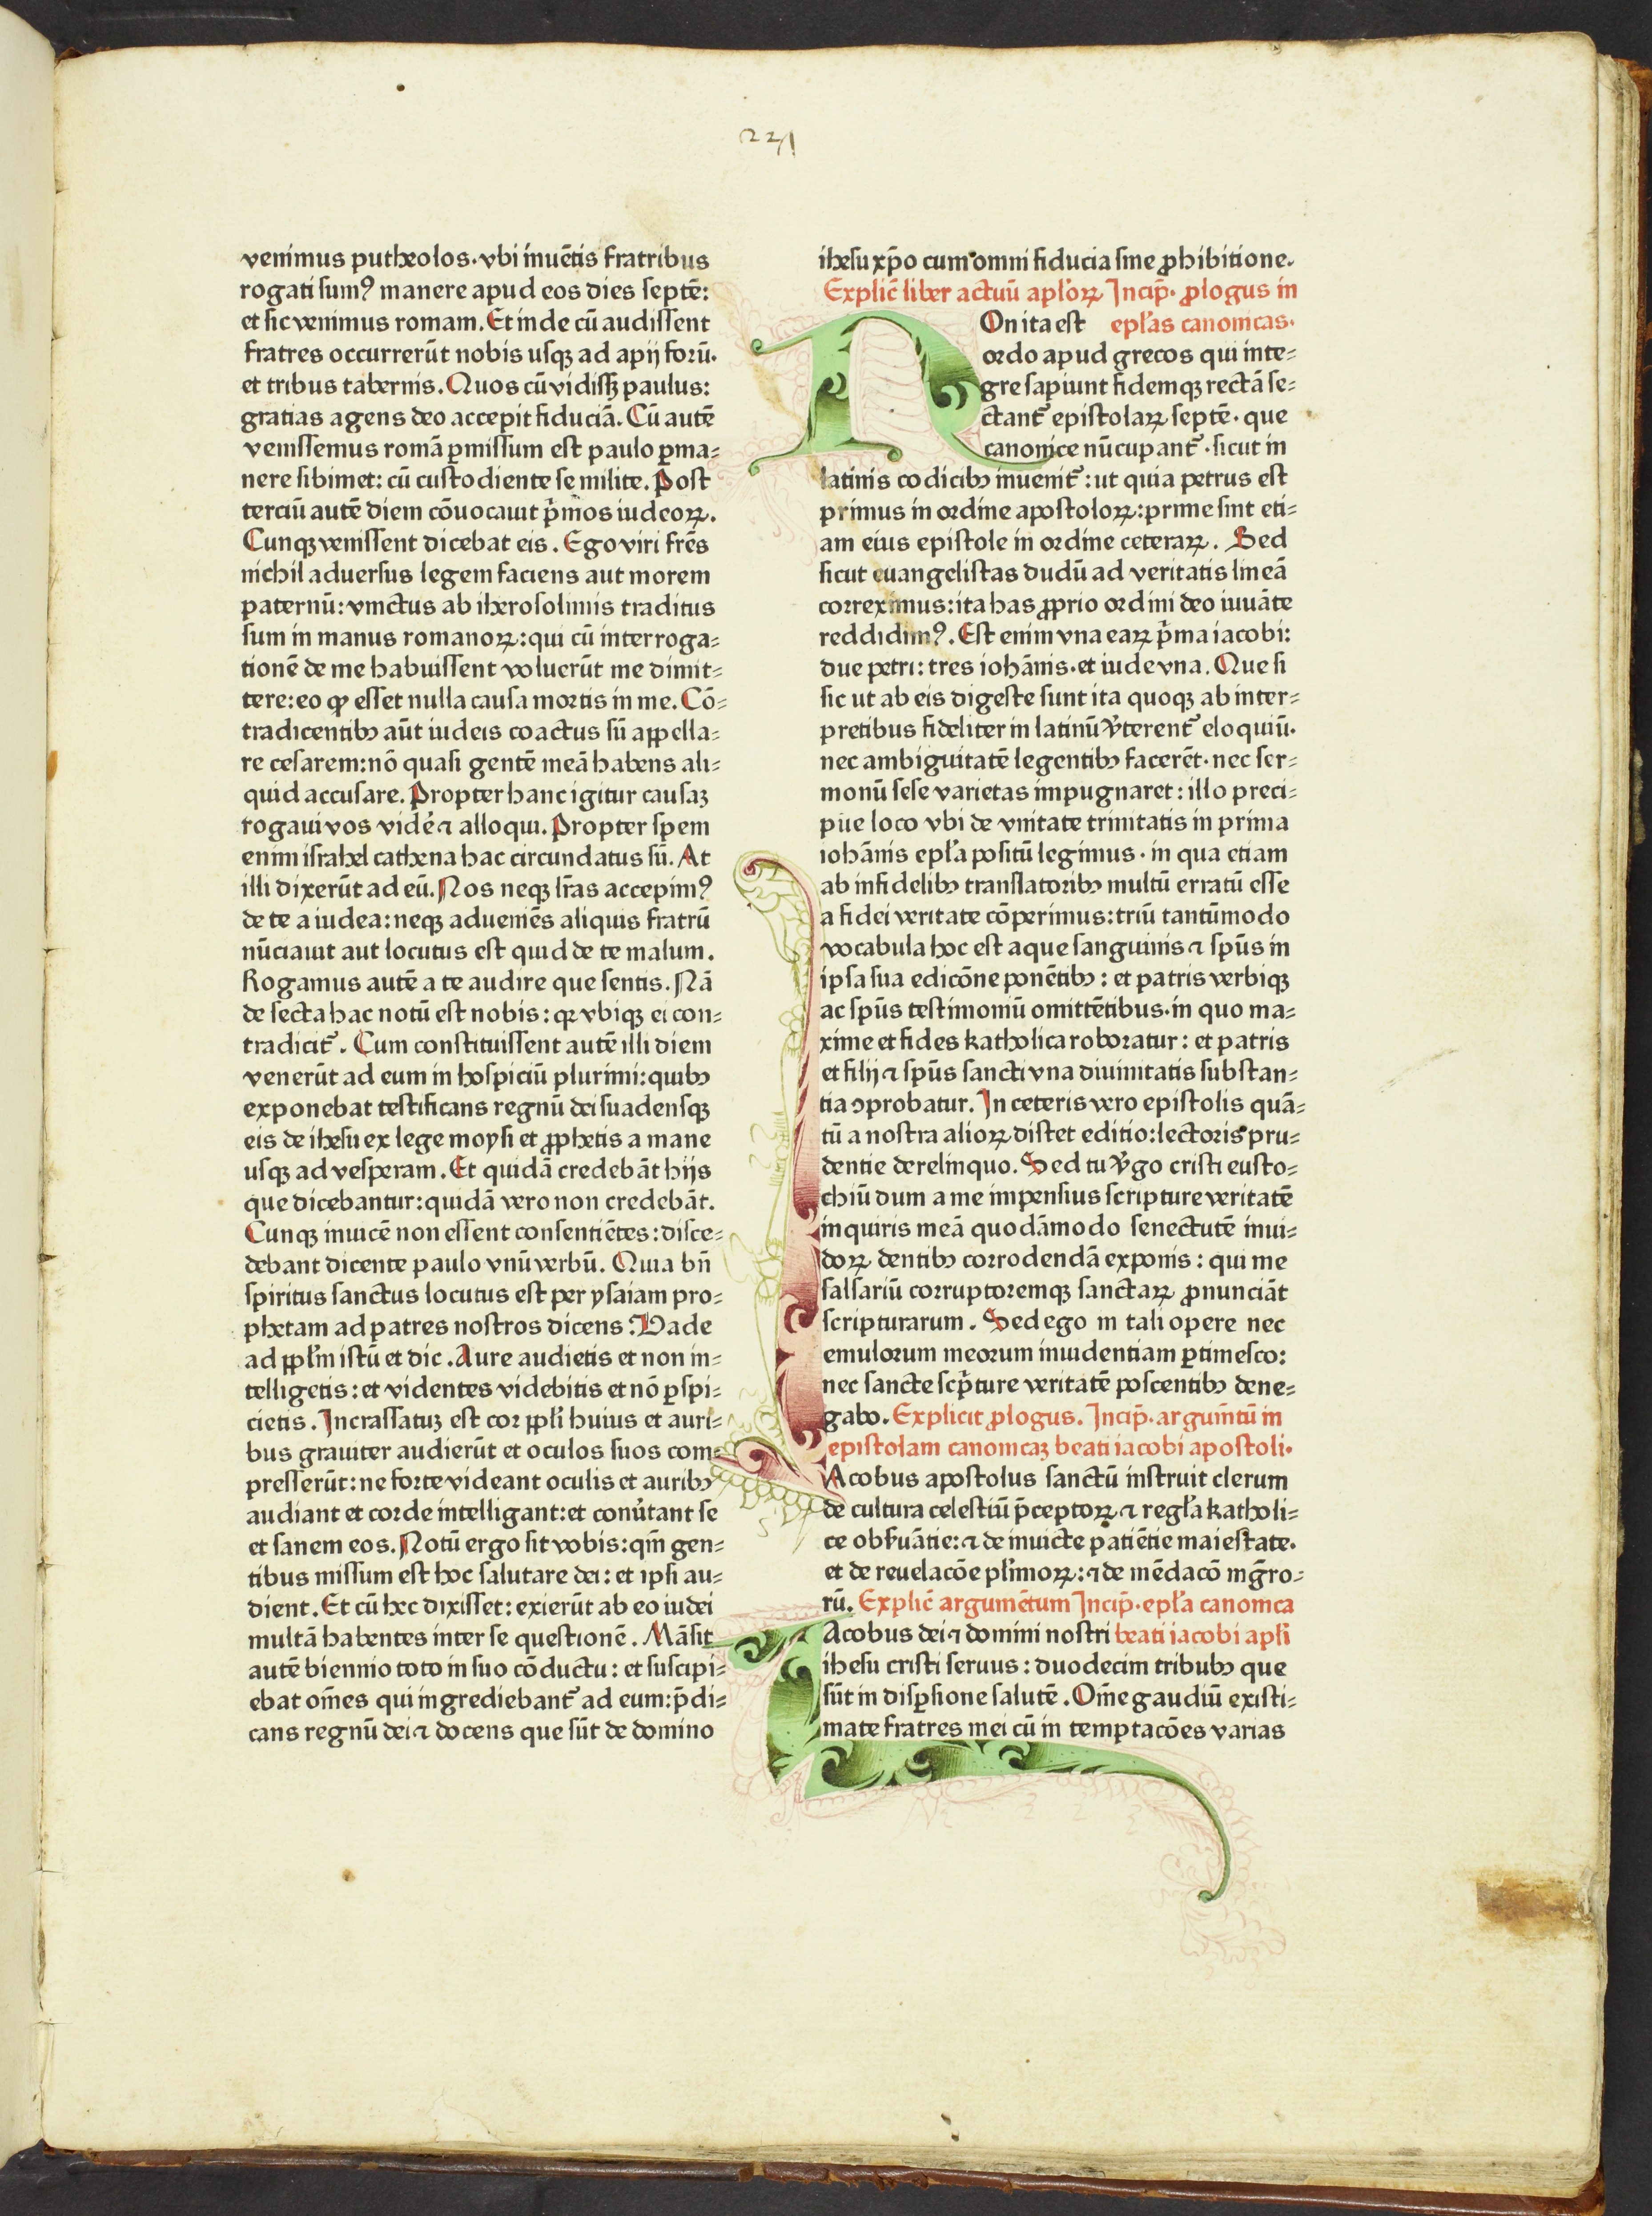 221
venimus putheolos·vbi inuētis fratribus
rogati sumꝰ manere apud eos dies septē:
et sic venimus romam. Et inde cū audissent
fratres occurrerūt nobis usqꝫ ad apij forū.
et tribus tabernis. Quos cū vidissꝫ paulus:
gratias agens deo accepit fiduciā. Cū autē
venissemus romā ꝑmissum est paulo ꝑma⸗
nere sibimet: cū custodiente se milite. Post
terciū autē diem cōuocauit p̄mos iudeoꝝ.
Cunqꝫ venissent dicebat eis. Ego viri fr̄es
nichil aduersus legem faciens aut morem
paternū: vinctus ab iherosolimis traditus
sum in manus romanoꝝ: qui cū interroga⸗
tionē de me habuissent voluerūt me dimit⸗
tere: eo ꝙ esset nulla causa mortis in me. Cō⸗
tradicentibꝯ aūt iudeis coactus sū aꝑpella⸗
re cesarem: nō quasi gentē meā habens ali⸗
quid accusare. Propter hanc igitur causaꝫ
rogaui vos vidē ⁊ alloqui. Propter spem
enim israhel cathena hac circundatus sū. At
illi dixerūt ad eū. Nos neqꝫ lr̄as accepimꝰ
de te a iudea: neqꝫ adueniēs aliquis fratrū
nūciauit aut locutus est quid de te malum.
Rogamus autē a te audire que sentis. Nā
de secta hac notū est nobis: qꝛ vbiqꝫ ei con⸗
tradicit᷑. Cum constituissent autē illi diem
venerūt ad eum in hospiciū plurimi: quibꝯ
exponebat testificans regnū dei suadensqꝫ
eis de ihesu ex lege moysi et ꝓphetis a mane
usqꝫ ad vesperam. Et quidā credebāt hijs
que dicebantur: quidā vero non credebāt.
Cunqꝫ inuicē non essent consentiētes: disce⸗
debant dicente paulo vnū verbū. Quia bn̄
spiritus sanctus locutus est per ysaiam pro⸗
phetam ad patres nostros dicens: Vade
ad ppłm istū et dic. Aure audietis et non in⸗
telligetis: et videntes videbitis et nō ꝑspi⸗
cietis. Incrassatuꝫ est cor ppłi huius et auri⸗
bus grauiter audierūt et oculos suos com⸗
presserūt: ne forte videant oculis et auribꝯ
audiant et corde intelligant: et conūtant se
et sanem eos. Notū ergo sit vobis: qm̄ gen⸗
tibus missum est hoc salutare dei: et ipsi au⸗
dient. Et cū hec dixisset: exierūt ab eo iudei
multā habentes inter se questionē. Māsit
autē biennio toto in suo cōductu: et suscipi⸗
ebat om̄es qui ingrediebant᷑ ad eum: p̄di⸗
cans regnū dei ⁊ docens que sūt de domino
ihesu xp̄o cum omni fiducia sine ꝓhibitione.
Explic̄ liber actuū apl'oꝝ Incip̄. ꝓlogus in
NOn ita est epl'as canonicas.
ordo apud grecos qui inte⸗
gre sapiunt fidemqꝫ rectā se⸗
ctant᷑ epistolaꝝ septē· que
canonice nūcupant᷑· sicut in
latinis codicibꝯ inuenit᷑: ut quia petrus est
primus in ordine apostoloꝝ: prime sint eti⸗
am eius epistole in ordine ceteraꝝ. Sed
sicut euangelistas dudū ad veritatis lineā
correximus: ita has ꝓprio ordini deo iuuāte
reddidimꝰ. Est enim vna eaꝝ p̄ma iacobi:
due petri: tres iohānis· et iude vna. Que si
sic ut ab eis digeste sunt ita quoqꝫ ab inter⸗
pretibus fideliter in latinū v̄terent᷑ eloquiū.
nec ambiguitatē legentibꝯ facerēt· nec ser⸗
monū sese varietas impugnaret: illo preci⸗
pue loco vbi de vnitate trinitatis in prima
iohānis epl'a positū legimus· in qua etiam
ab infidelibꝯ translatoribꝯ multū erratū esse
a fidei veritate cōperimus: triū tantūmodo
vocabula hoc est aque sanguinis ⁊ sp̄us in
ipsa sua edicōne ponētibꝯ: et patris verbiqꝫ
ac sp̄us testimoniū omittētibus· in quo ma⸗
xime et fides katholica roboratur: et patris
et filij ⁊ sp̄us sancti vna diuinitatis substan⸗
tia ↄprobatur. In ceteris vero epistolis quā⸗
tū a nostra alioꝝ distet editio: lectoris pru⸗
dentie derelinquo. Sed tu v̄go cristi eusto⸗
chiū dum a me impensius scripture veritatē
inquiris meā quodāmodo senectutē inui⸗
doꝝ dentibꝯ corrodendā exponis: qui me
falsariū corruptoremqꝫ sanctaꝝ ꝓnunciāt
scripturarum. Sed ego in tali opere nec
emulorum meorum inuidentiam ꝑtimesco:
nec sancte scp̄ture veritatē poscentibꝯ dene⸗
gabo. Explicit ꝓlogus. Incip̄. argum̄tū in
epistolam canonicaꝫ beati iacobi apostoli.
IAcobus apostolus sanctū instruit clerum
de cultura celestiū p̄ceptoꝝ ⁊ regl'a katholi⸗
ce obẜuātie: ⁊ de inuicte patiētie maiestate.
et de reuelacōe pl'imoꝝ: ⁊ de mēdacō mḡro⸗
rū. Explic̄ argumētum Incip̄. epl'a canonica
IAcobus dei ⁊ domini nostri beati iacobi apl'i
ihesu cristi seruus: duodecim tribubꝯ que
sūt in disꝑsione salutē. Om̄e gaudiū existi⸗
mate fratres mei cū in temptacōes varias